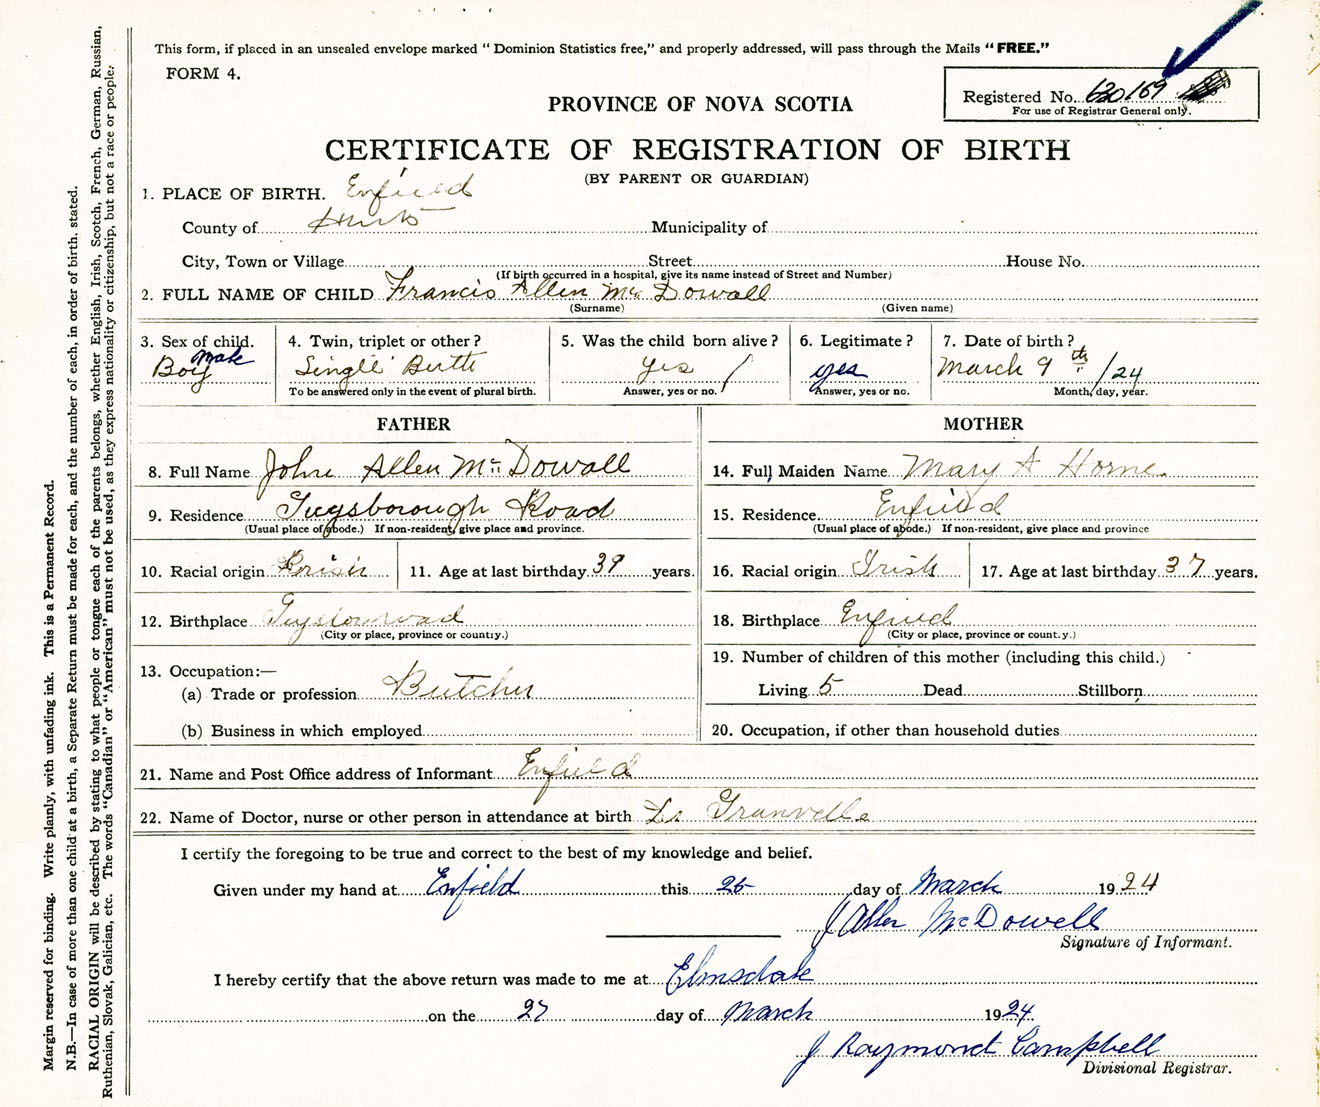 This form, if placed in an unsealed envelope marked "Dominion Statistics free," and properly addressed, will pass through the Mails "FREE."
FORM 4.
Registered No. 630169
For use of Registrar General only.
PROVINCE OF NOVA SCOTIA
CERTIFICATE OF REGISTRATION OF BIRTH
(BY PARENT OR GUARDIAN)
1. PLACE OF BIRTH. Enfield
County of Hants Municipality of
City, Town or Village Street House No.
(If birth occurred in a hospital, give its name instead of Street and Number)
2. FULL NAME OF CHILD Francis Allen McDowall
(Surname) (Given name)
3. Sex of child. 4. Twin, triplet or other? 5. Was the child born alive? 6. Legitimate? 7. Date of birth?
Boy Male Single Birth Yes yes March 9th /24
To be answered only in the event of plural birth. Answer, yes or no. Answer, yes or no. Month, day, year.
FATHER MOTHER
8. Full Name John Allen McDowall 14. Full Maiden Name Mary A Horne
9. Residence Guysborough Road 15. Residence Enfield
(Usual place of abode.) If non-resident, give place and province. (Usual place of abode.) If non-resident, give place and province
10. Racial origin 11. Age at last birthday 39 years. 16. Racial origin Irish 17. Age at last birthday 37 years.
12. Birthplace 18. Birthplace Enfield
(City or place, province or country.) (City or place, province or country.)
13. Occupation:— 19. Number of children of this mother (including this child.)
(a) Trade or profession Butcher Living 5 Dead Stillborn
(b) Business in which employed 20. Occupation, if other than household duties
21. Name and Post Office address of Informant Enfield
22. Name of Doctor, nurse or other person in attendance at birth
I certify the foregoing to be true and correct to the best of my knowledge and belief.
Given under my hand at Enfield this 25 day of March 1924
J Allen McDowell
Signature of Informant.
I hereby certify that the above return was made to me at Elmsdale
on the 27 day of March 1924
J Raymond Campbell
Divisional Registrar.
Margin reserved for binding. Write plainly, with unfading ink. This is a Permanent Record.
N.B.—In case of more than one child at a birth, a Separate Return must be made for each, and the number of each, in order of birth. stated.
RACIAL ORIGIN will be described by stating to what people or tongue each of the parents belongs, whether English, Irish, Scotch, French, German, Russian,
Ruthenian, Slovak, Galician, etc. The words "Canadian" or "American" must not be used, as they express nationality or citizenship, but not a race or people.